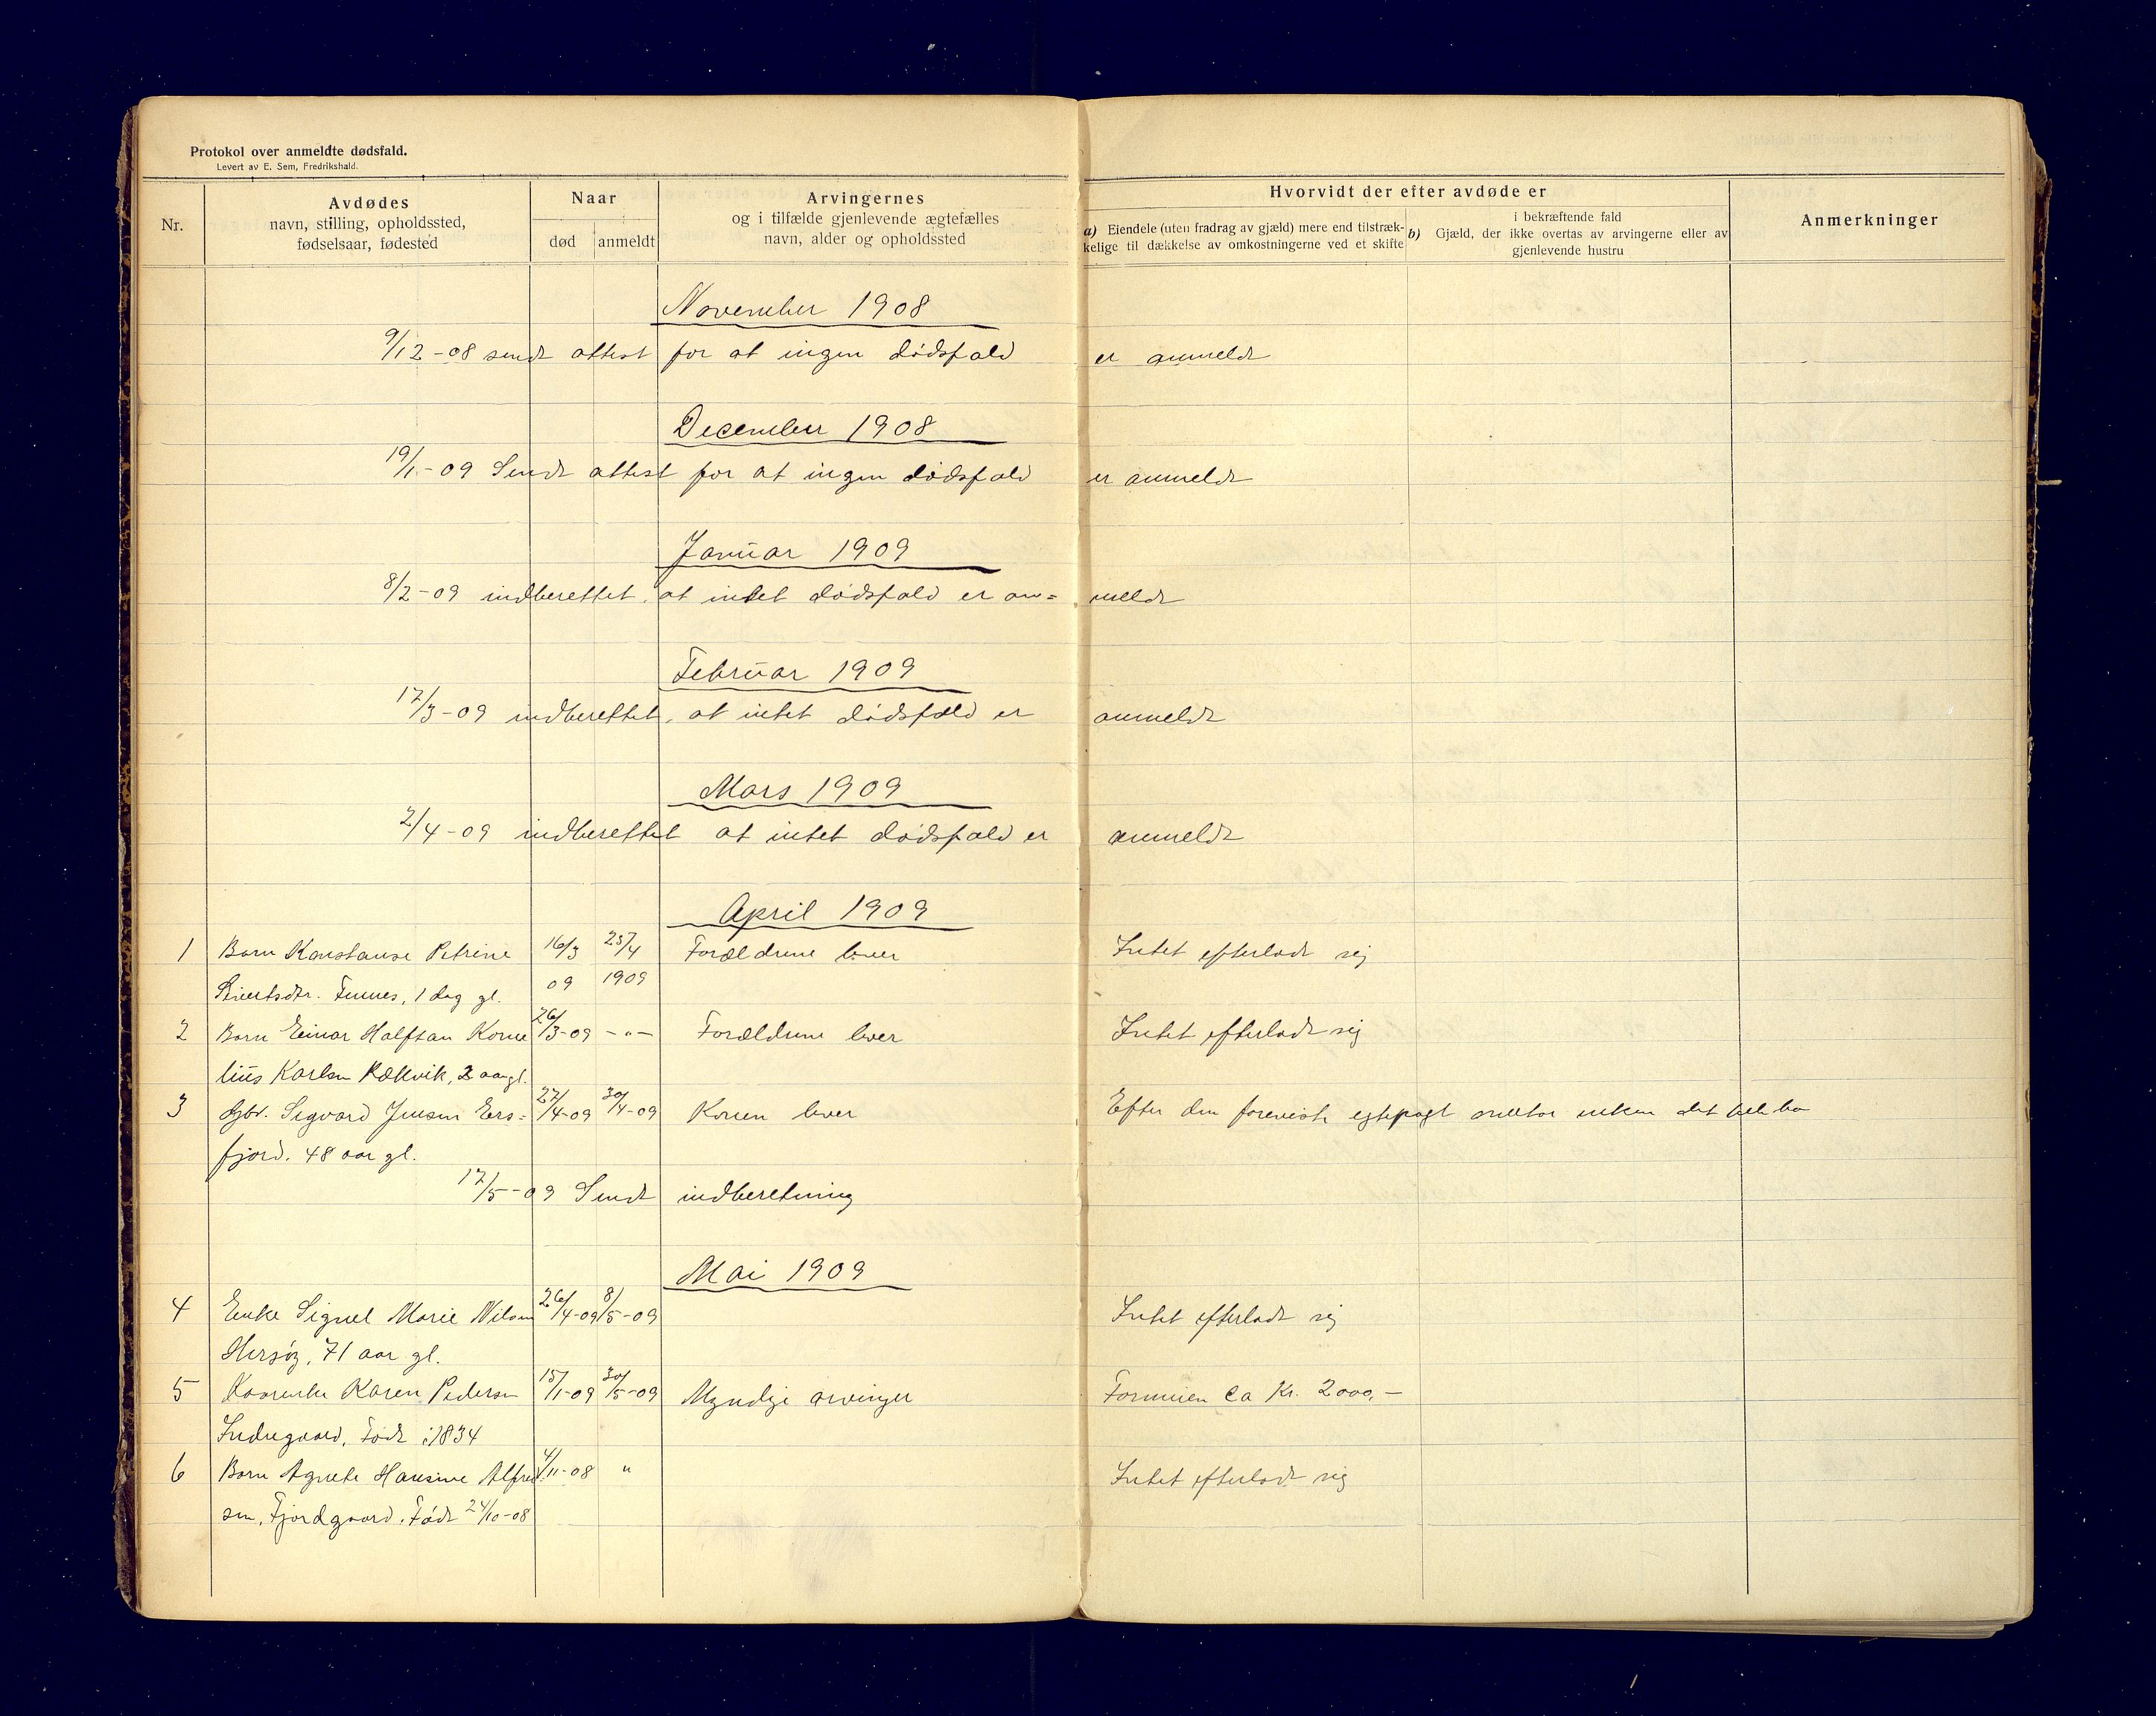 Protokol over anmeldte dødsfald.
Levert av E. Sem, Fredrikshald.
Nr.
Avdødes
navn, stilling, opholdssted,
fødselsaar, fødested
Naar
død
anmeldt
Arvingernes
og i tilfælde gjenlevende ægtefælles
navn, alder og opholdssted
Hvorvidt der efter avdøde er
a) Eiendele (uten fradrag av gjæld) mere end tilstræk-
kelige til dækkelse av omkostningerne ved et skifte
i bekræftende fald
b) Gjæld, der ikke overtas av arvingerne eller av
gjenlevende hustru
Anmerkninger
November 1908
9/12-08 sendt attest for at ingen dødsfald er anmeldt
December 1908
19/1-09 Sendt attest for at ingen dødsfald er anmeldt
Januar 1909
8/2-09 indberettet, at intet dødsfald er an= meldt
Februar 1909
17/3-09 indberettet, at intet dødsfald er anmeldt
Mars 1909
2/4-09 indberettet at intet dødsfald er anmeldt
April 1909
1 Barn Konstanse Petrine 16/3 23/4 Forældrene lever Intet efterladt sig
Sivertsdtr. Finnes, 1 dag gl. 09 1909
2 Barn Einar Halfdan Korne 26/3-09 -"- Forældrene lever Intet efterladt sig
lius Karlsen 2 aar gl.
3 Gbr. Sigvard Jensen Ers= 27/4-09 30/4-09 Konen lever Efter den foreviste egtepagt enken det hele bo
fjord. 48 aar gl.
17/5-09 Sendt indberetning
Mai 1909
4 Enke Signel Marie Nilsen 26/4-09 8/5-09 Intet efterladt sig
71 aar gl.
5 Karen Pedersen 15/1-09 30/5-09 Myndige arvinger Formuen ca Kr. 2000,-
Indregaard. Født i 1834
6 Barn Agnete Hansine Alfred 4/11-08 " Intet efterladt sig
sen, Fjordgaard. Født 24/10-08